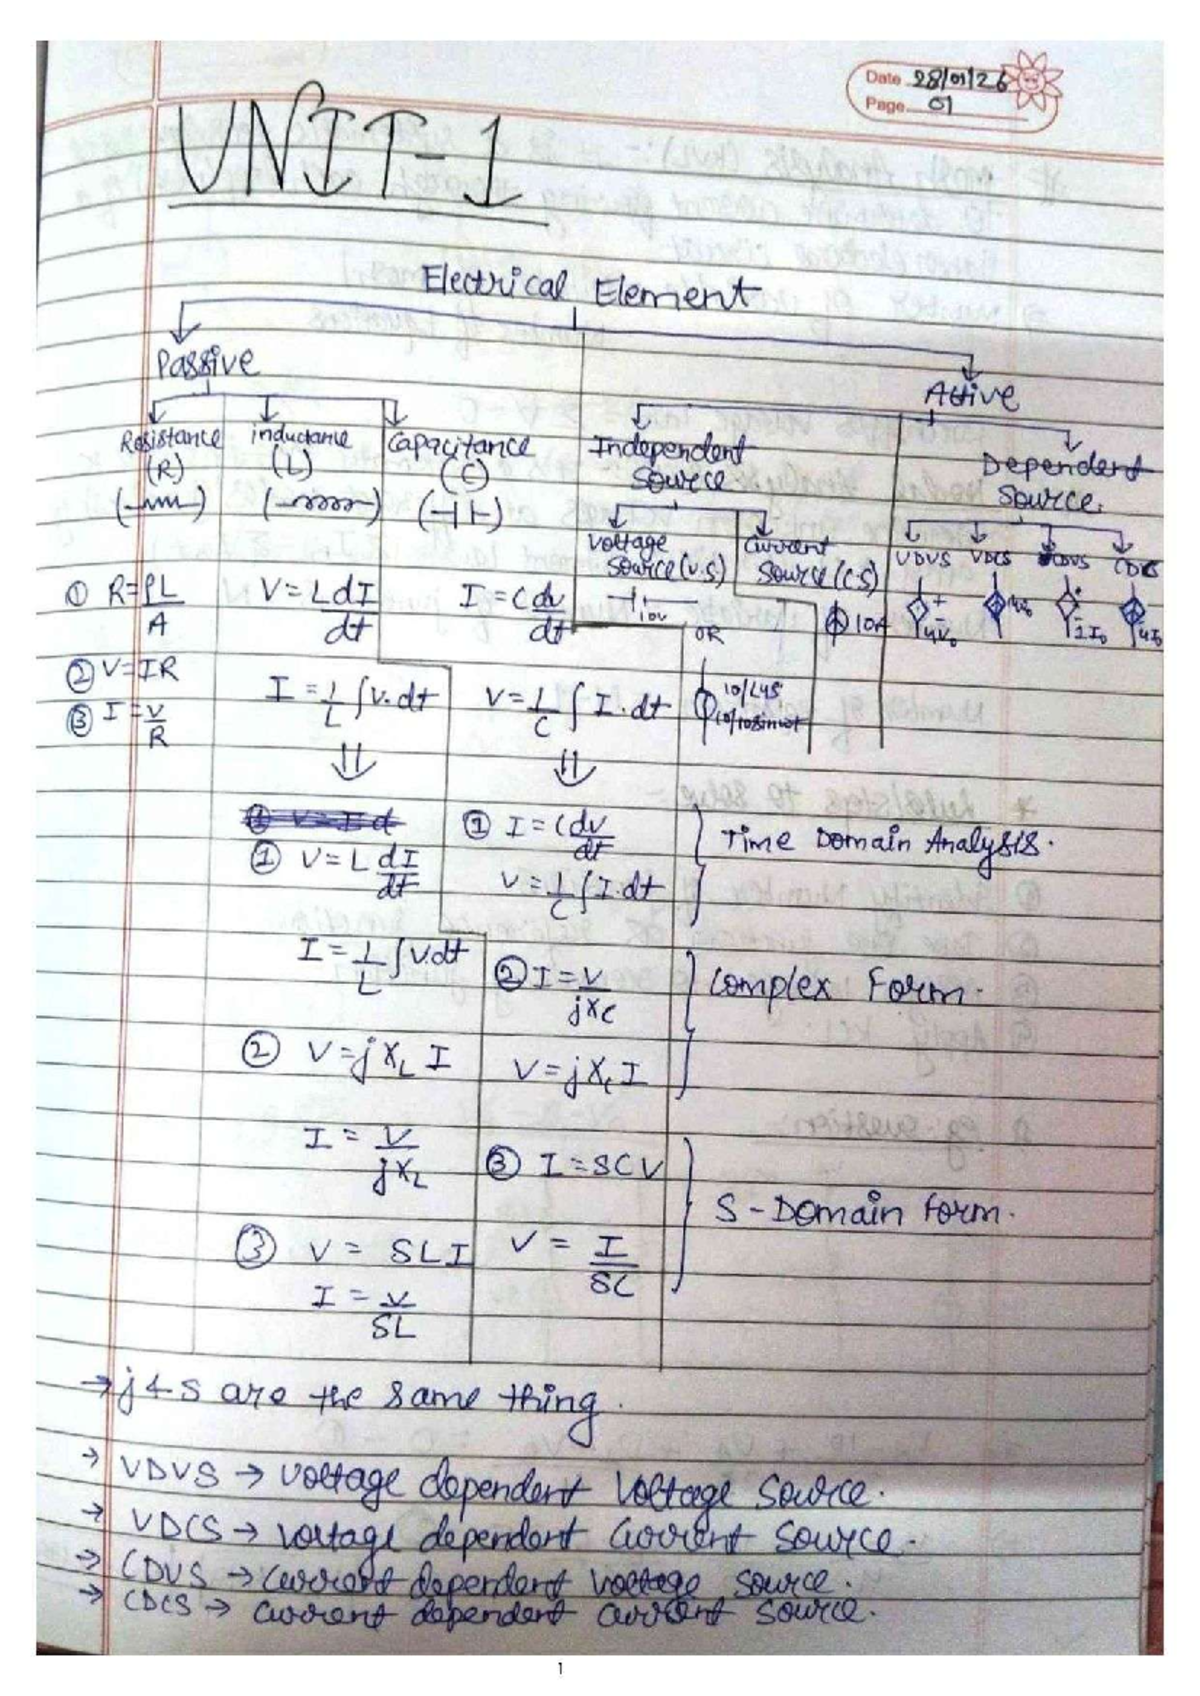 Date 28/01/26
Page 01
UNIT-1
Electrical Element
Passive
Active
Resistance (R)
inductance (L)
Capacitance (C)
Independent Source
Dependent Source.
Voltage Source (V.S)
Current Source (C.S)
VDVS VDCS CDVS CDCS
① R = ρL/A
② V = IR
③ I = V/R
V = L dI/dt
I = 1/L ∫ V.dt
I = C dv/dt
V = 1/C ∫ I.dt
10V
OR
10A
4V₀
4V₀
2I₀
4I₀
① V = L dI/dt
I = 1/L ∫ V.dt
② V = jXL I
I = V/jXL
③ V = SLI
I = V/SL
① I = C dv/dt
V = 1/C ∫ I.dt
② I = V/jXc
V = jXc I
③ I = SCV
V = I/SC
Time Domain Analysis.
Complex Form.
S-Domain Form.
→ j & S are the same thing.
→ VDVS → Voltage dependent Voltage Source.
→ VDCS → Voltage dependent Current Source.
→ CDVS → Current dependent Voltage Source.
→ CDCS → Current dependent Current Source.
1